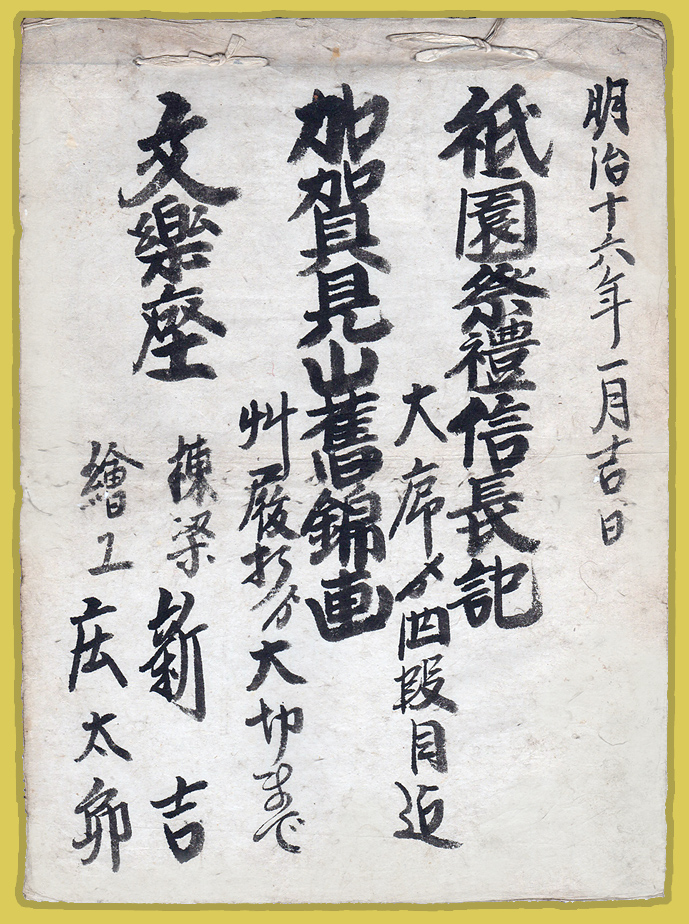 明治十六年一月吉日
祇園祭禮信長記
大席ゟ四段目迄
加賀見山舊錦画
艸履打ゟ大切まで
文樂座
棟梁 新吉
繪工 庄太郎